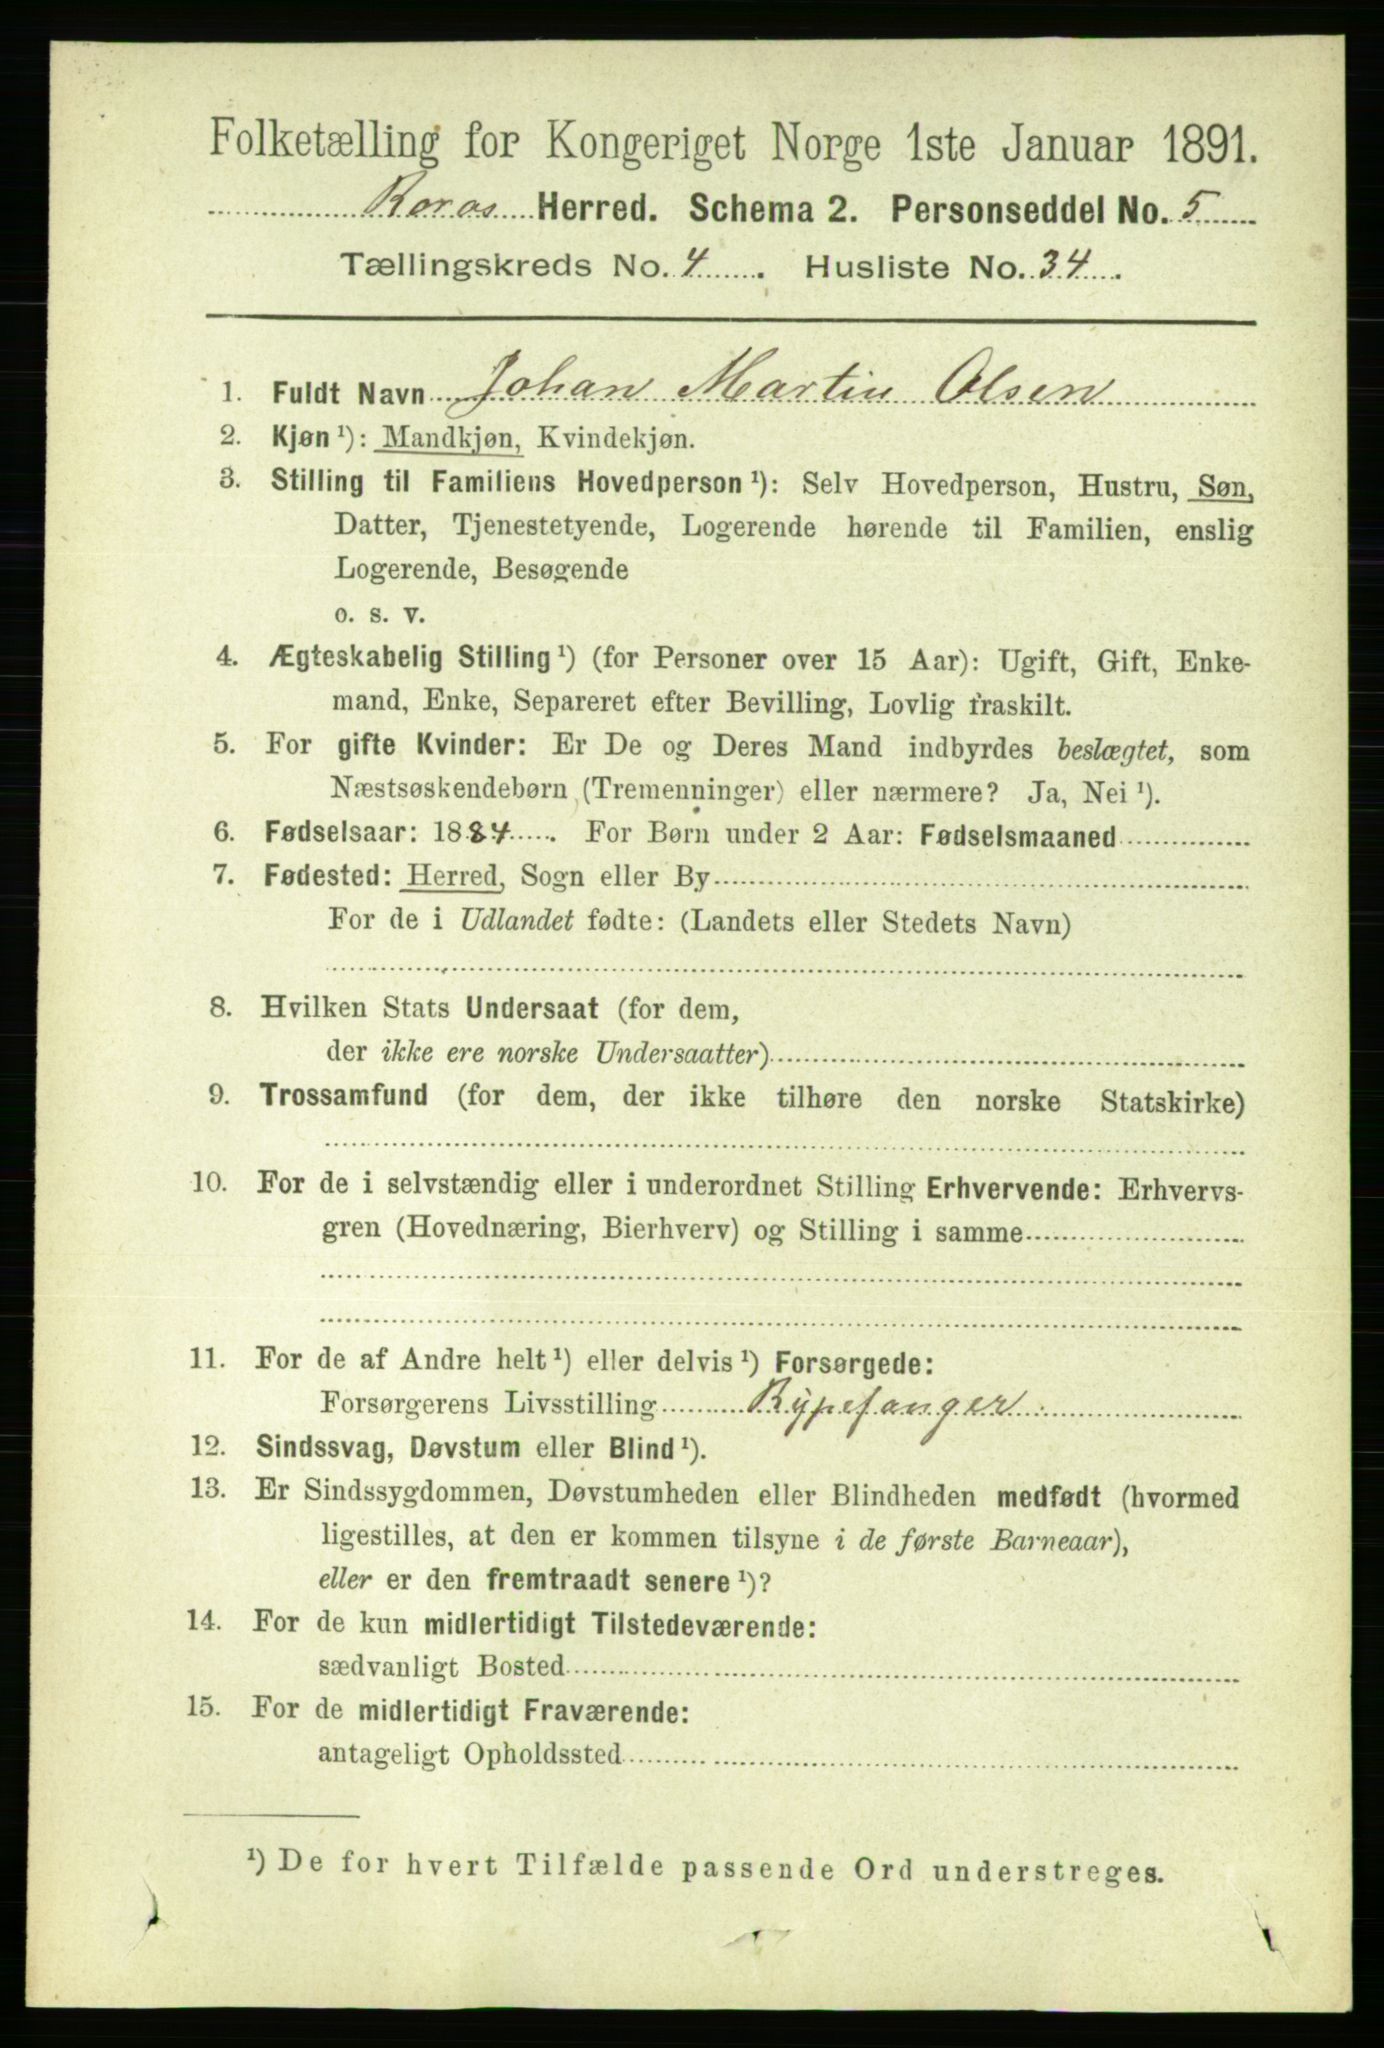 Folketælling for Kongeriget Norge 1ste Januar 1891.
Røros Herred. Schema 2. Personseddel No. 5
Tællingskreds No. 4. Husliste No. 34.
1. Fuldt Navn Johan Martin Olsen
2. Kjøn ¹): Mandkjøn, Kvindekjøn.
3. Stilling til Familiens Hovedperson ¹): Selv Hovedperson, Hustru, Søn,
Datter, Tjenestetyende, Logerende hørende til Familien, enslig
Logerende, Besøgende
o. s. v.
4. Ægteskabelig Stilling ¹) (for Personer over 15 Aar): Ugift, Gift, Enke-
mand, Enke, Separeret efter Bevilling, Lovlig fraskilt.
5. For gifte Kvinder: Er De og Deres Mand indbyrdes beslægtet, som
Næstsøskendebørn (Tremenninger) eller nærmere? Ja, Nei ¹).
6. Fødselsaar: 1884. For Børn under 2 Aar: Fødselsmaaned
7. Fødested: Herred, Sogn eller By
For de i Udlandet fødte: (Landets eller Stedets Navn)
8. Hvilken Stats Undersaat (for dem,
der ikke ere norske Undersaatter)
9. Trossamfund (for dem, der ikke tilhøre den norske Statskirke)
10. For de i selvstændig eller i underordnet Stilling Erhvervende: Erhvervs-
gren (Hovednæring, Bierhverv) og Stilling i samme
11. For de af Andre helt ¹) eller delvis ¹) Forsørgede:
Forsørgerens Livsstilling Rypefanger
12. Sindssvag, Døvstum eller Blind ¹).
13. Er Sindssygdommen, Døvstumheden eller Blindheden medfødt (hvormed
ligestilles, at den er kommen tilsyne i de første Barneaar),
eller er den fremtraadt senere ¹)?
14. For de kun midlertidigt Tilstedeværende:
sædvanligt Bosted
15. For de midlertidigt Fraværende:
antageligt Opholdssted
¹) De for hvert Tilfælde passende Ord understreges.